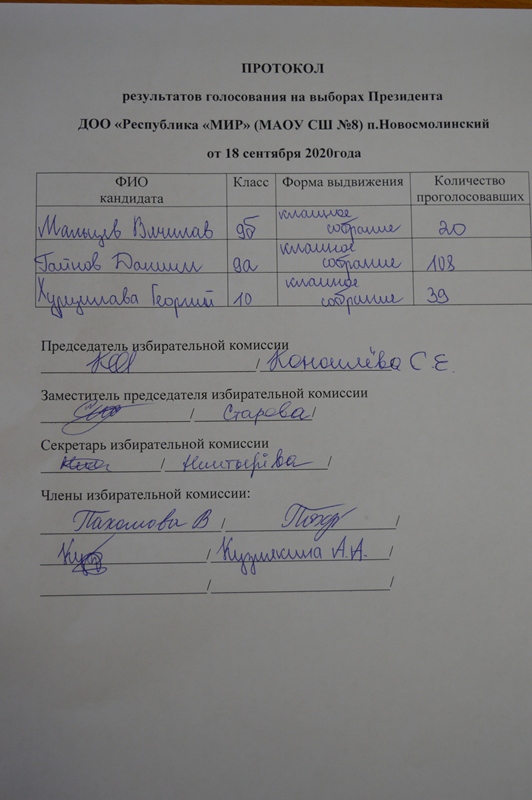 ПРОТОКОЛ
результатов голосования на выборах Президента
ДОО «Республика «МИР» (МАОУ СШ №8) п.Новосмолинский
от 18 сентября 2020года
ФИО кандидата Класс Форма выдвижения Количество проголосовавших
Мальцев Вячеслав 9б классное собрание 20
Гаинов Даниил 9а классное собрание 108
Георгий 10 классное собрание 39
Председатель избирательной комиссии
/ Коноплёва С.Е.
Заместитель председателя избирательной комиссии
/ Старова/
Секретарь избирательной комиссии
/ /
Члены избирательной комиссии:
Пахомова В / /
/ Кузякина А.А. /
/ /